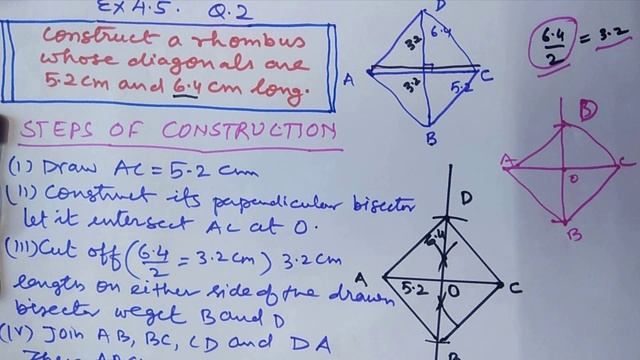 EX 4.5. Q.2
Construct a rhombus
whose diagonals are
5.2cm and 6.4cm long.
STEPS OF CONSTRUCTION
(I) Draw AC = 5.2 cm
(II) Construct its papendicular bisector
let it entersect AC at O.
(III) Cut off (6.4/2 = 3.2cm) 3.2cm
lengths on either side of the drawn
bisector we get B and D
(IV) Join AB, BC, CD and DA
D
3.2 6.4
A 3.2 5.2 C
B
6.4/2 = 3.2
D
A O C
B
D
6.4
A 5.2 O C
B